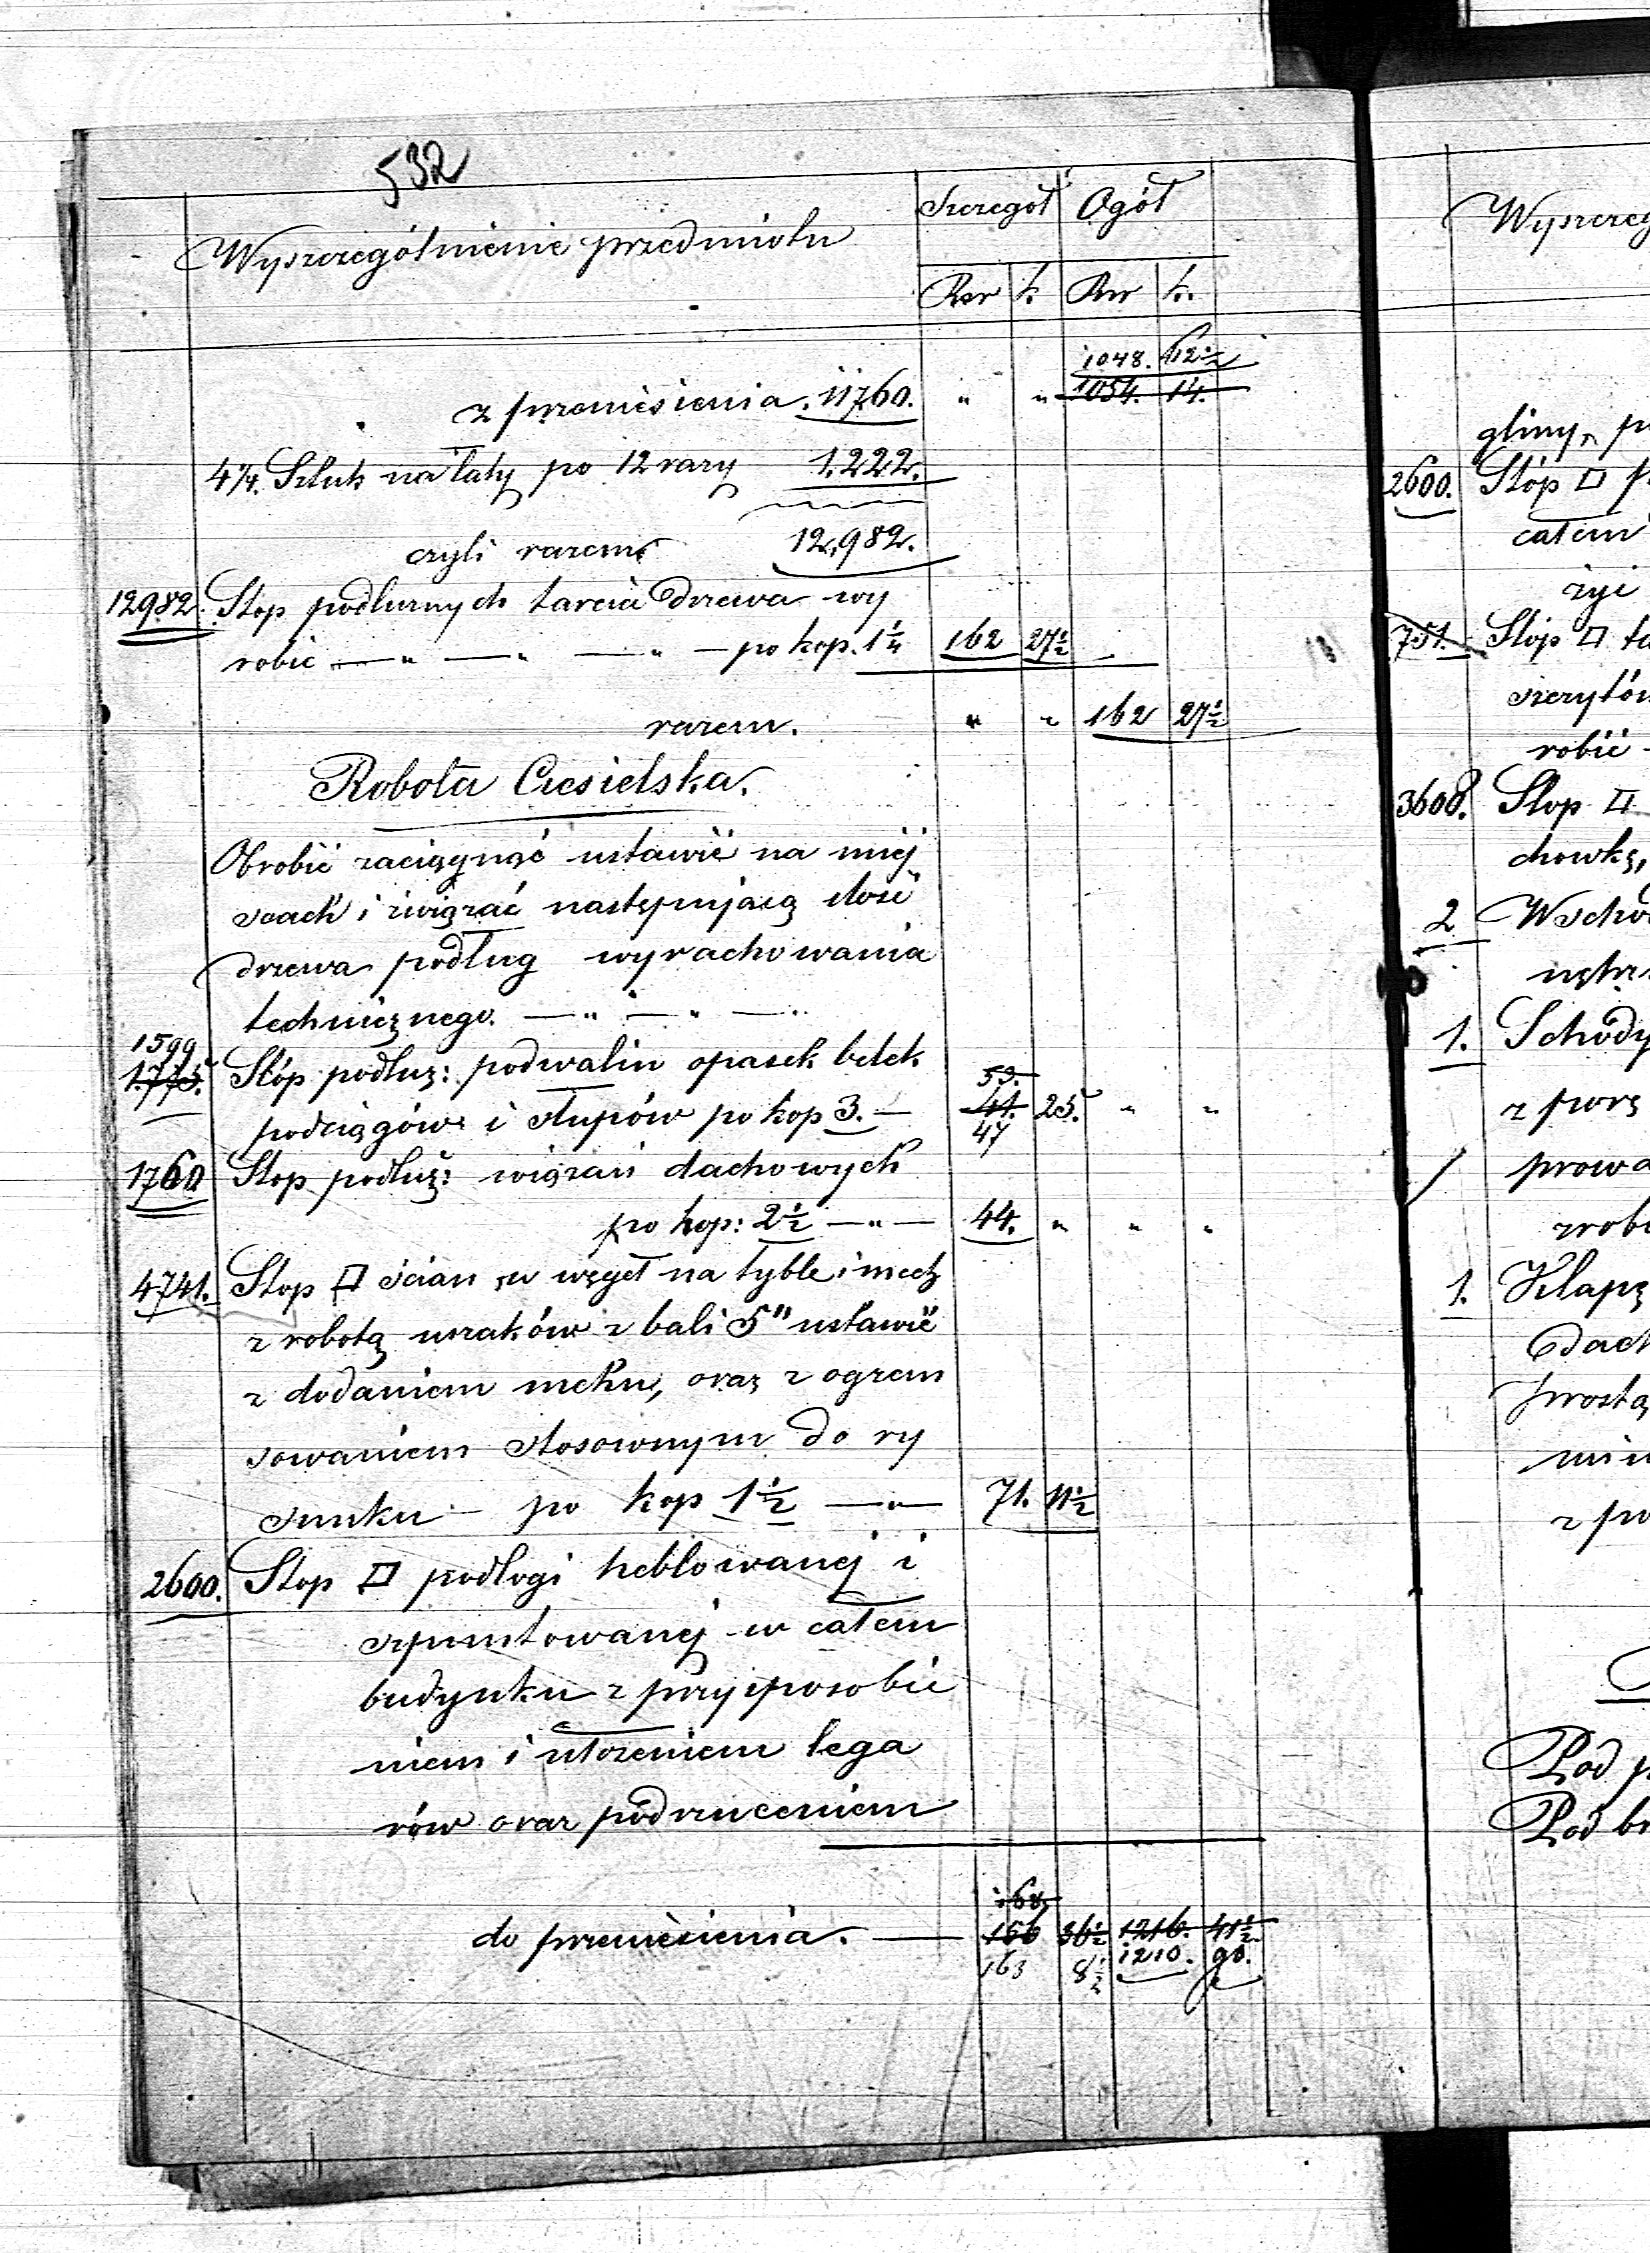 532
Wyszczególnienie przedmiotu
Szczegół Ogół
Rsr k. Rsr k.
1048. 62½
z przeniesienia. 11760. " " 1054. 14.
47. Sztuk na łaty po 12 razy 1.222.
czyli razem 12,982.
12982. Stop podłużnych tarcia drzewa wy
robić — " — " — " — po kop. 1¼ 162 27½
razem. " " 162 27½
Robota Ciesielska.
Obrobić zaciągnąć ustawić na miej
scach i związać następującą ilość
drzewa podług wyrachowania
technicznego. — " — " — "
1599
1.775. Stóp podłuż: podwalin opasek belek
53.
podciągów i słupów po kop 3. — 41. 25. " "
47
1760 Stop podłuż: wiązań dachowych
po kop: 2½ — " — 44. " " "
4741. Stop □ ścian w węgeł na tyble i mech
z robotą uszaków z bali 5" ustawić
z dodaniem mchu, oraz z ogzem
sowaniem stosownym do ry
sunku — po kop 1½ — " — 71. 11½
2600. Stop □ podłogi heblowanej i
szpuntowanej w całem
budynku z przysposobie
niem i ułożeniem lega
rów oraz podrzuceniem
168,
do przeniesienia. — 156 36½ 1216. 41½
163 8½ 1210. 90.
Wyszczeg
gliny,
2600. Stóp □
całem
życi
751. Stóp □
szczytów
robić
3600. Stop □
chowką,
2 Wschod
1. Schody
prowa
zrobi
1. Klapę
Dach
prostą
Pod
Pod